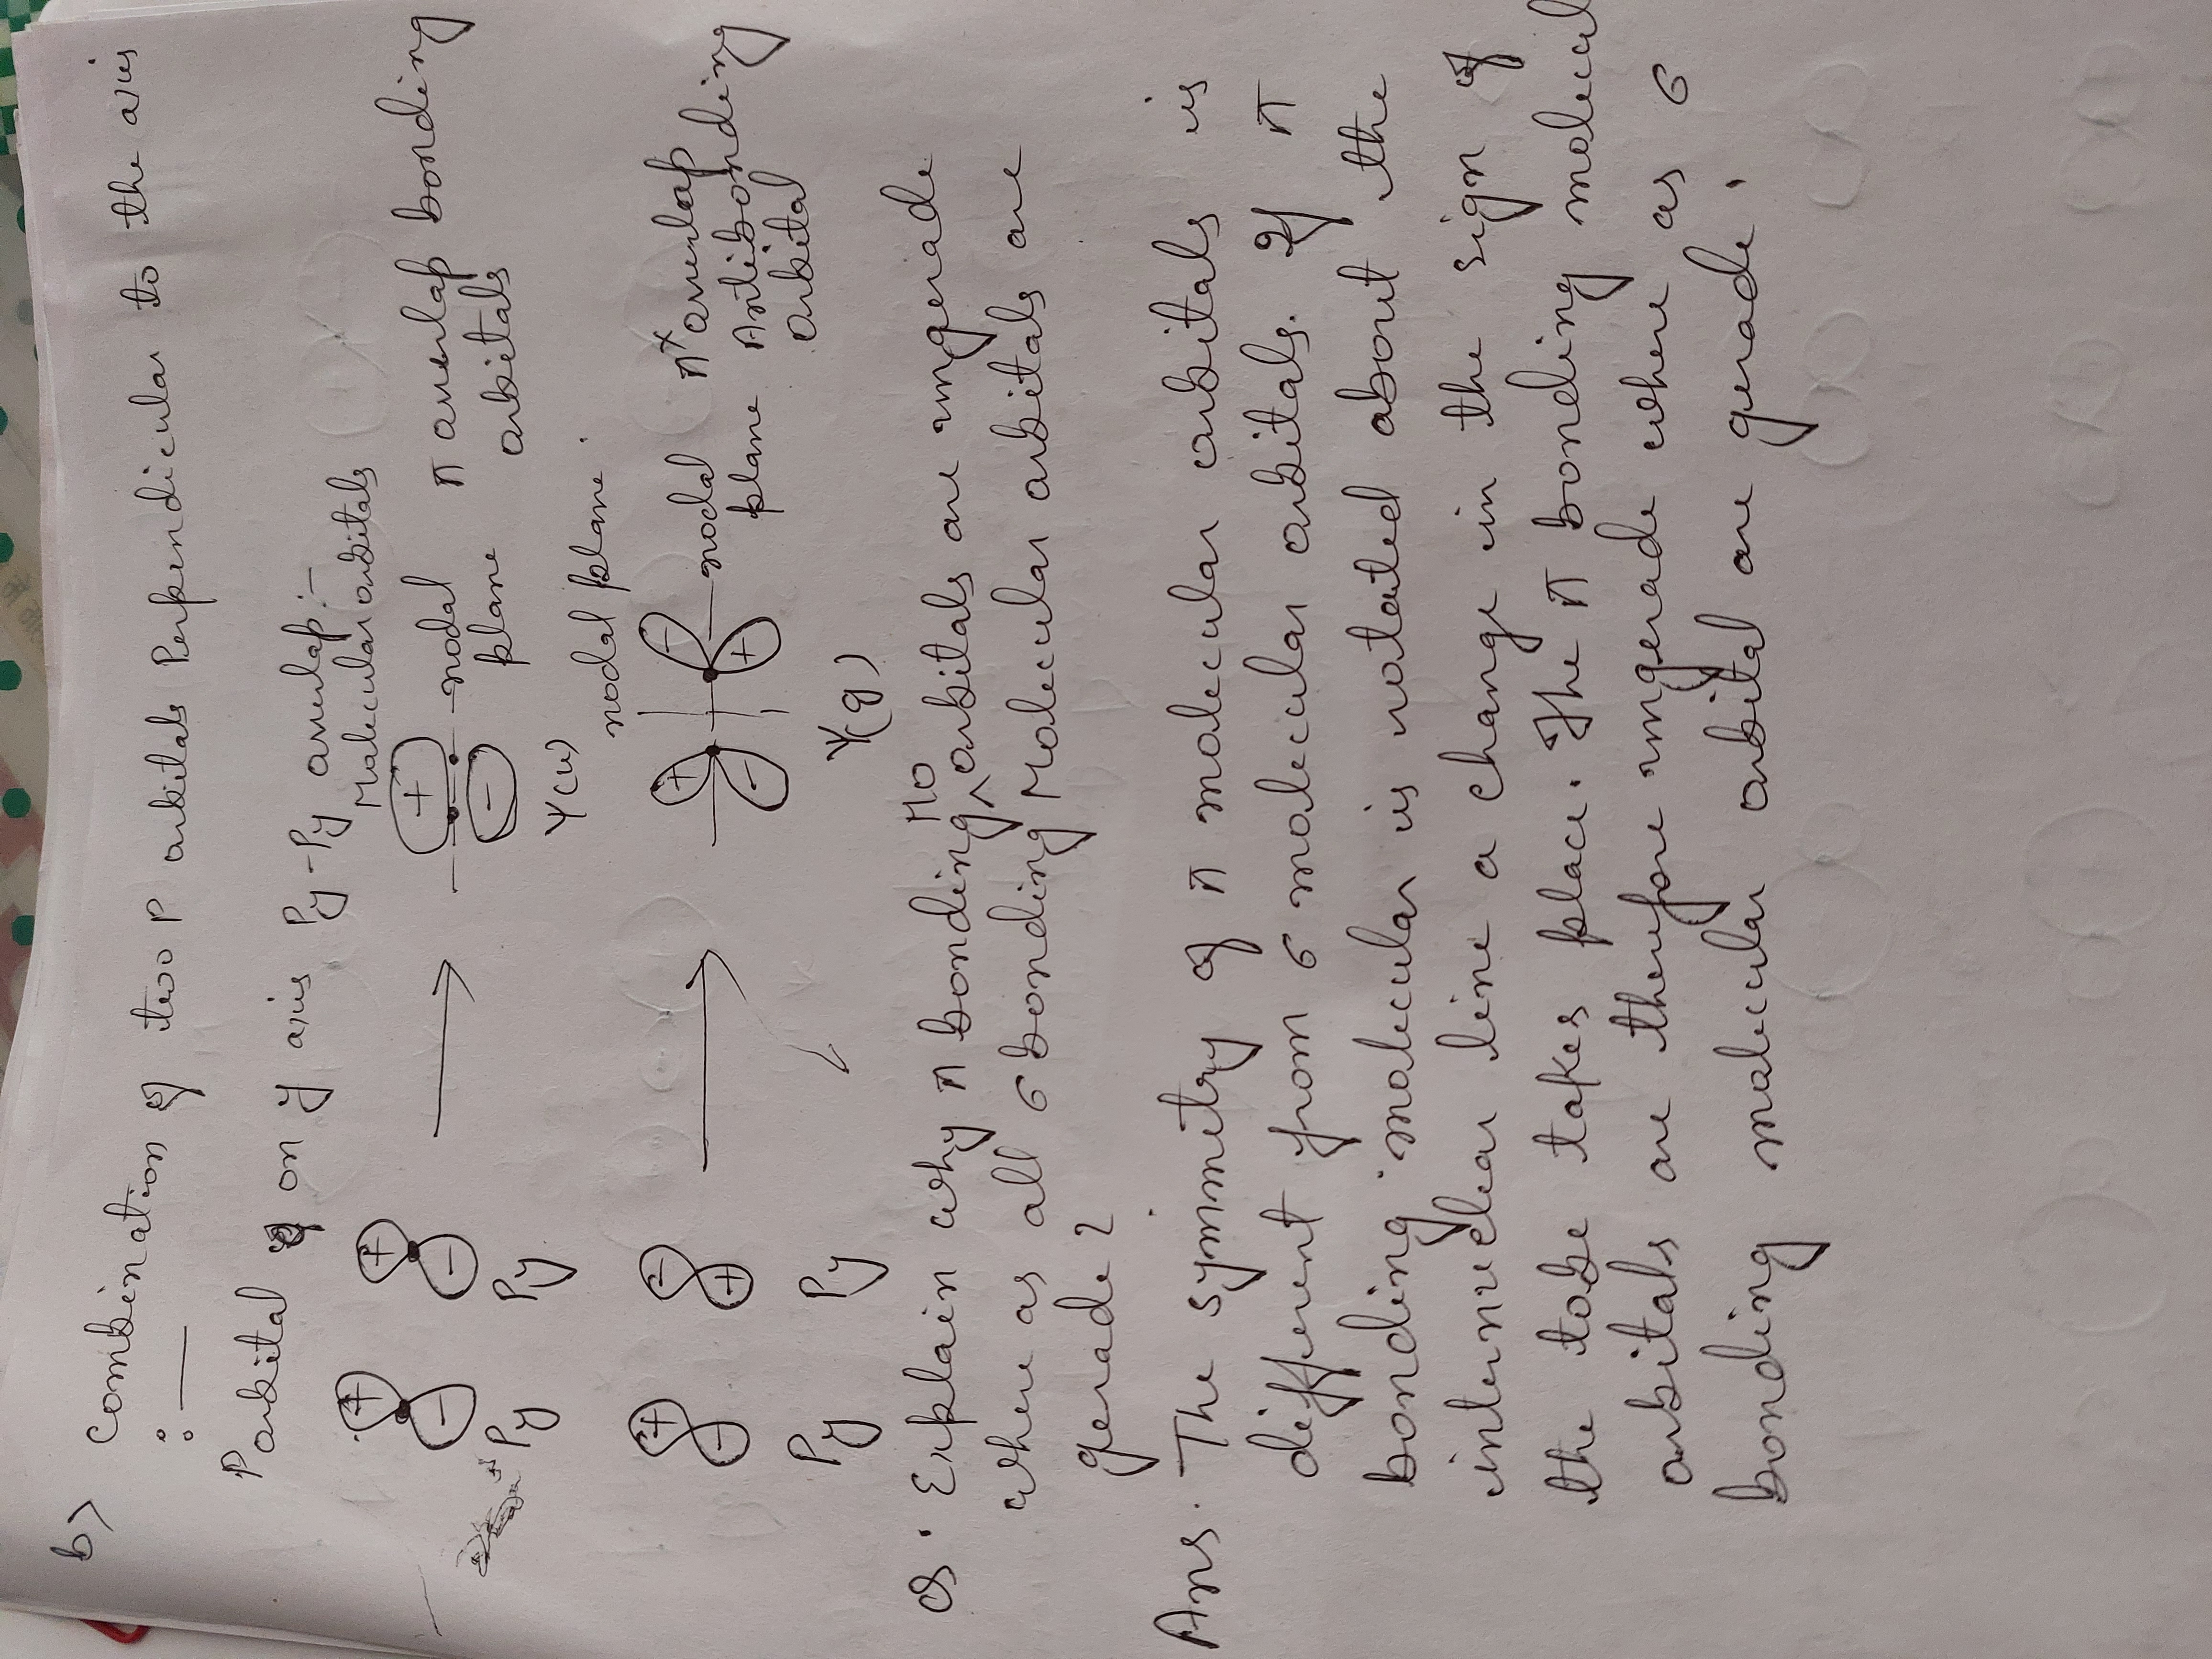 b) Combination of two P orbitals Perpendicular to the axis
:—
P orbital on y axis Py-Py overlap :-
Molecular orbitals
+ + + nodal plane π overlap bonding orbitals
- - -
Py Py Ψ(u)
nodal plane.
+ - + - nodal plane π* overlap Antibonding orbital
- + - +
Py Py Ψ(g)
Q. Explain why π bonding MO orbitals are ungerade
where as all σ bonding Molecular orbitals are
gerade ?
Ans. The symmetry of π molecular orbitals is
different from σ molecular orbitals. If π
bonding molecular is rotated about the
internuclear line a change in the sign of
the lobe takes place. The π bonding molecul
orbitals are therefore ungerade where as σ
bonding molecular orbital are gerade.